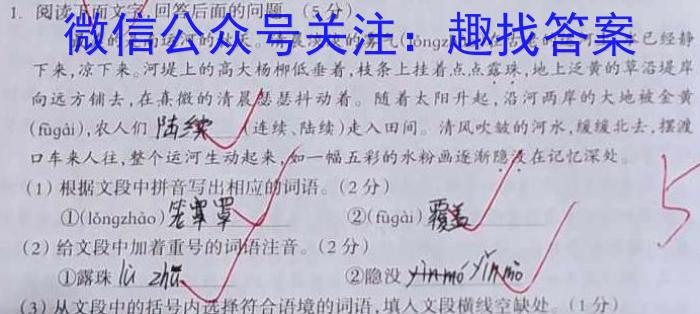 1. 阅读下面文字,回答后面的问题。(5分)
微信公众号关注：趣找答案
已经静
下来,凉下来。河堤上的高大杨柳低垂着,枝条上挂着点点露珠,地上泛黄的草沿堤岸
向远方铺去,在熹微的清晨瑟瑟抖动着。随着太阳升起,沿河两岸的大地被金黄
(fùgài),农人们 陆续 (连续、陆续)走入田间。清风吹皱的河水,缓缓北去,摆渡
口车来人往,整个运河生动起来,如一幅五彩的水粉画逐渐隐没在记忆深处。
(1)根据文段中拼音写出相应的词语。(2分)
①(lǒngzhào) 笼罩 ②(fùgài) 覆盖
(2)给文段中加着重号的词语注音。(2分)
①露珠 lù zhū ②隐没 yǐn mò
(3)从文段中的括号内选择符合语境的词语,填入文段横线空缺处。(1分)
5